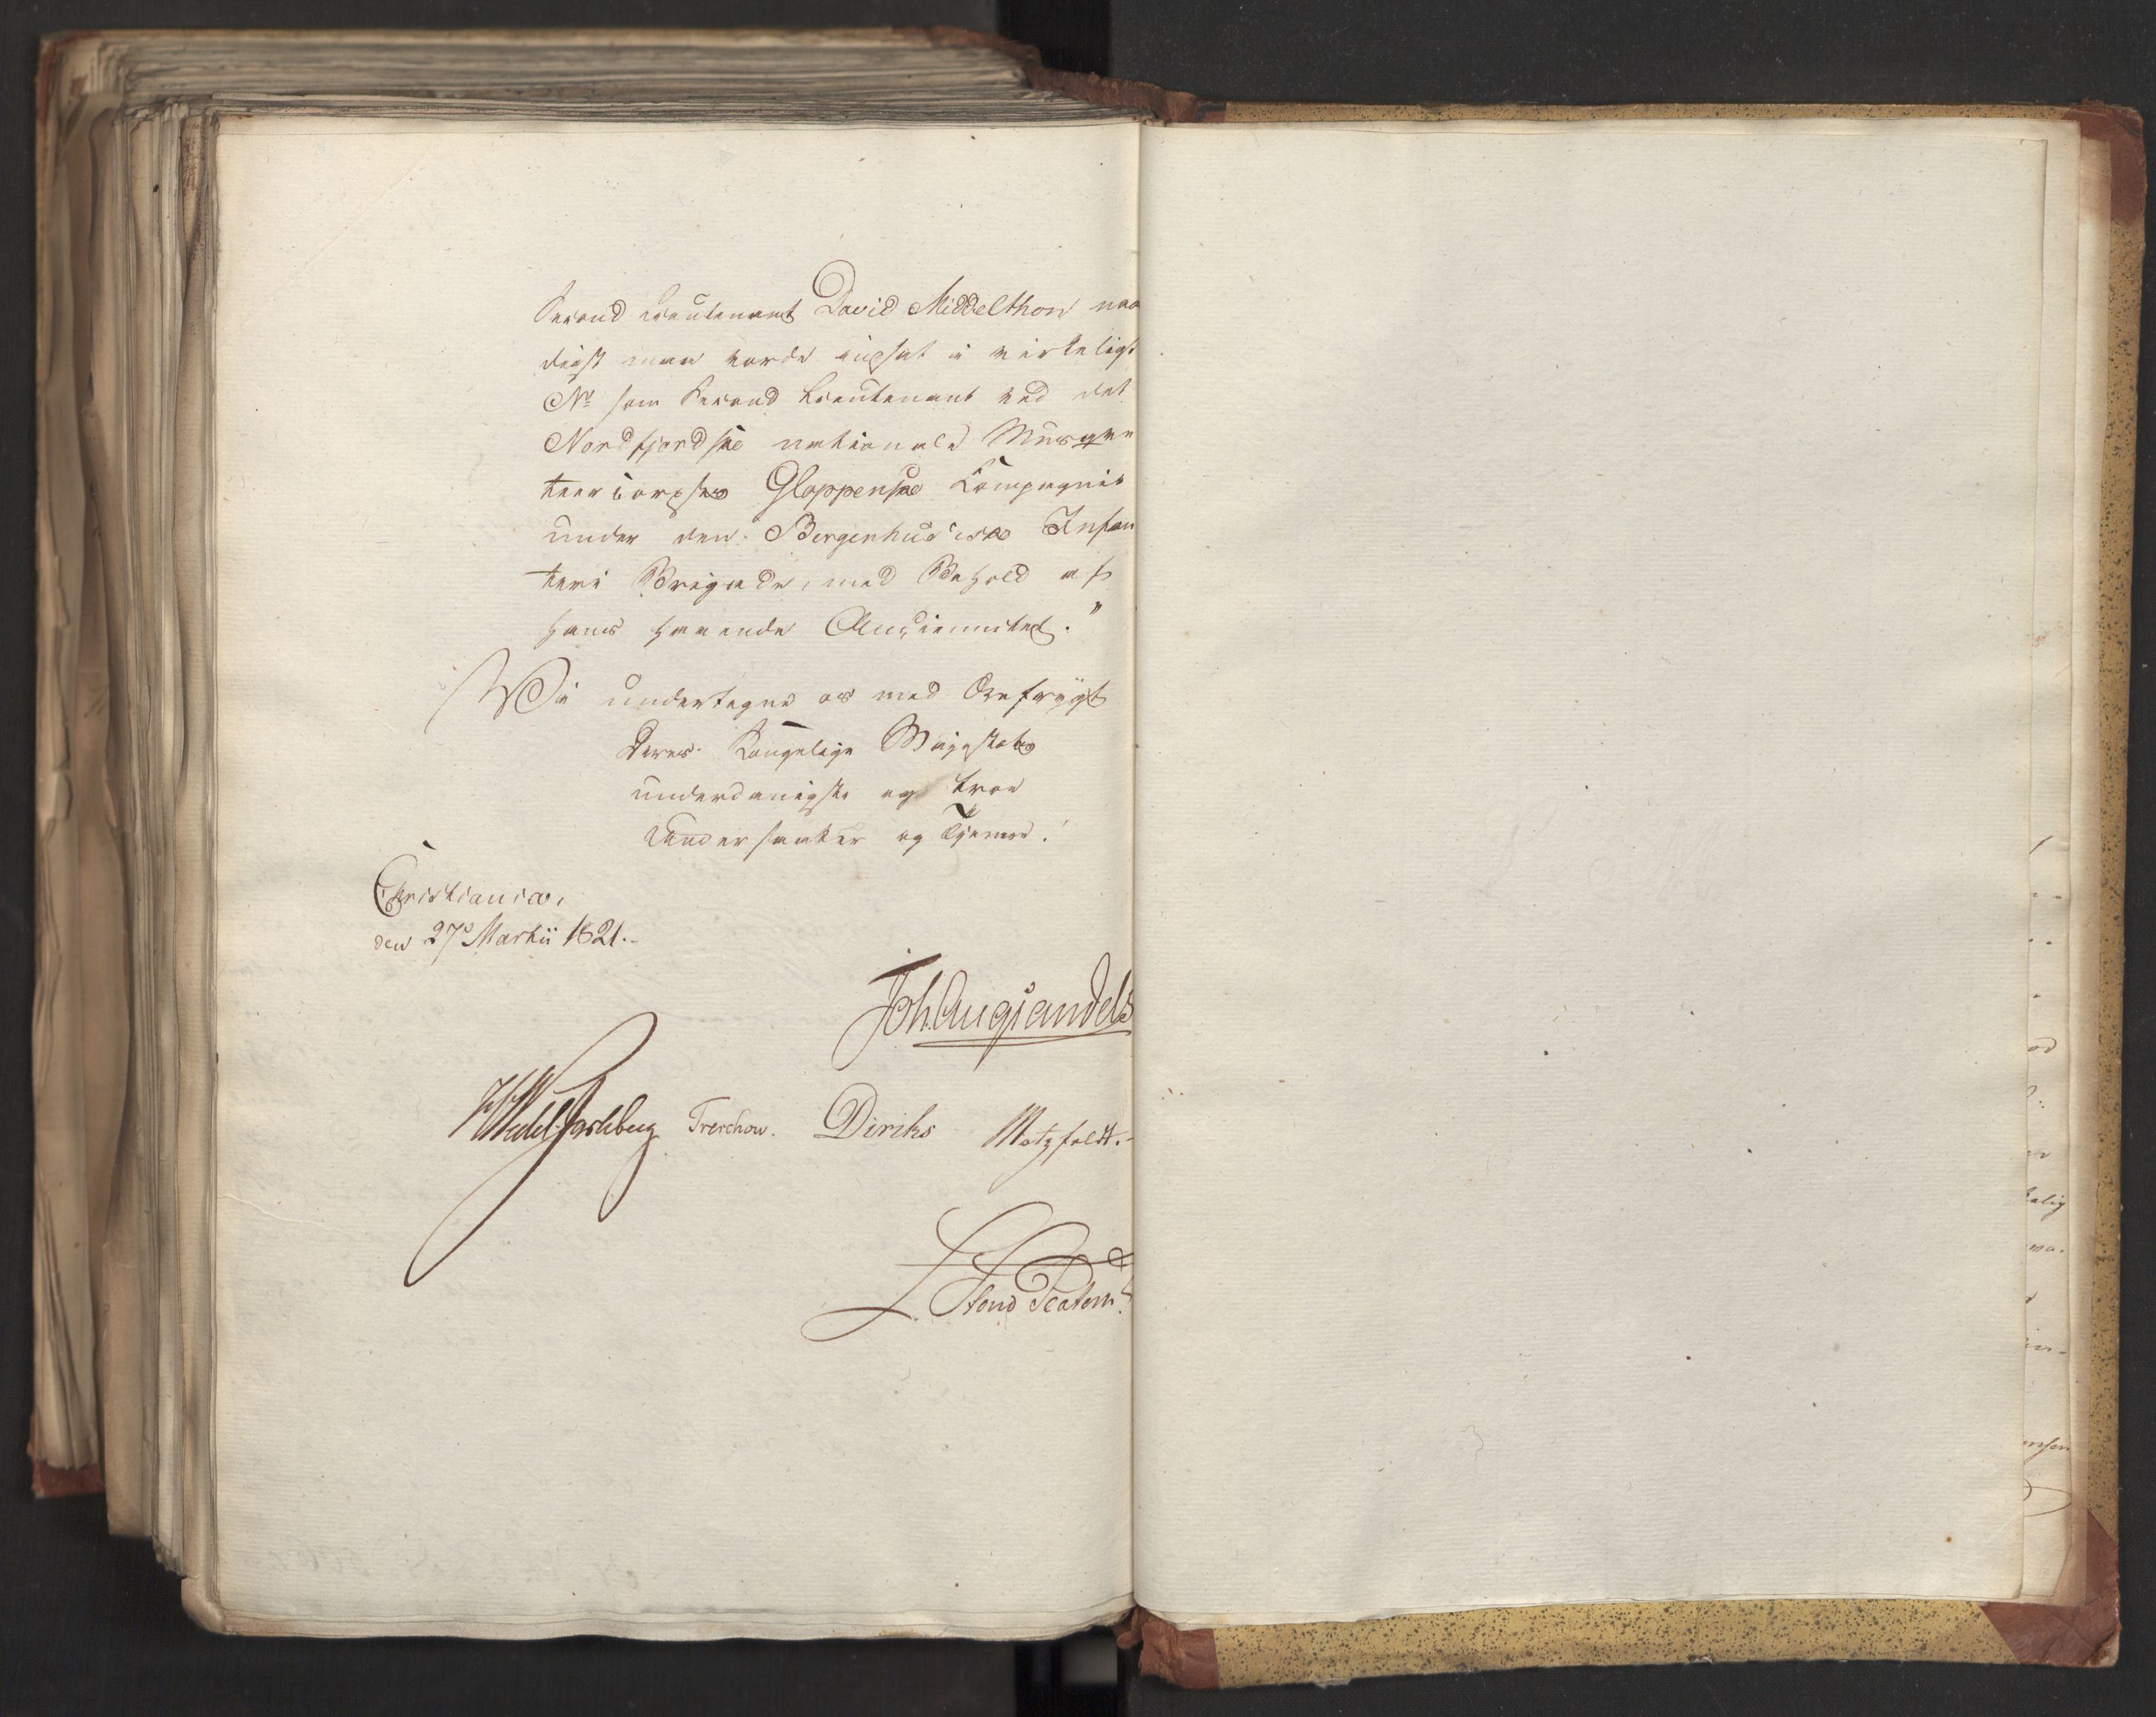 Second Lieutenant David Middelthon naa
digst maa vorde indsat i virkeligt
No som Second Lieutenant ved det
Nordfjordske nationale Musque
teercorpses Gloppenske Compagnie
under den Bergenhusiske Infan
teri Brigade, med Behold af
hans havende Anciennitet."
Vi undertegne os med Ærefrygt
Deres Kongelige Majestæts
underdanigste og troe
Undersaatter og Tjenere.
Christiania,
den 27de Martii 1821.
Joh. Aug. Sandels
HWedel Jarlsberg Treschow. Diriks Motzfeldt.
L. Stoud Platou